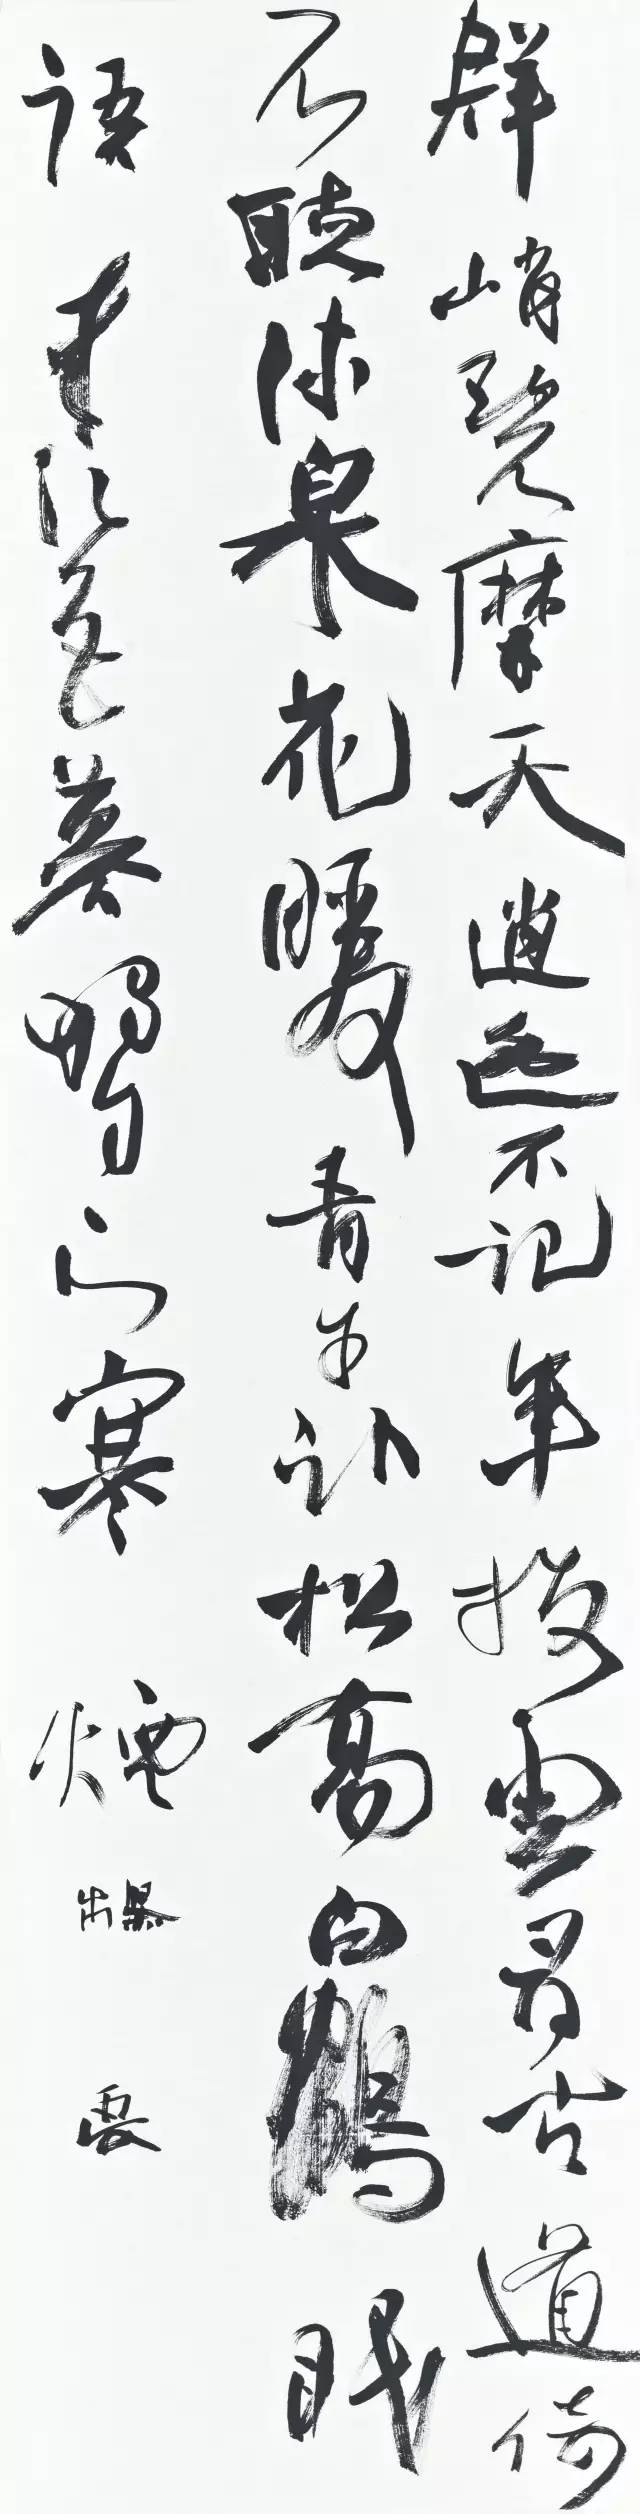 群峭碧摩天逍遙不記年撥雲尋古道倚
石聽流泉花暖青牛臥松高白鶴眠
語來江色暮獨自下寒煙